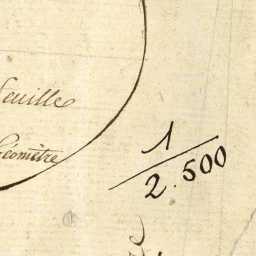 feuille
Géomètre
1
2.500